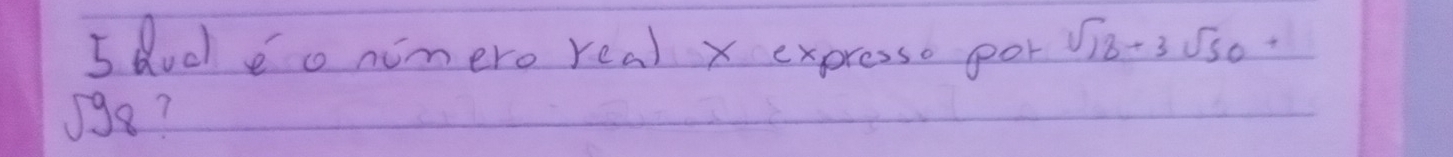 5 Qual é o número real x expresso por √18 + 3 √50 +
√98?